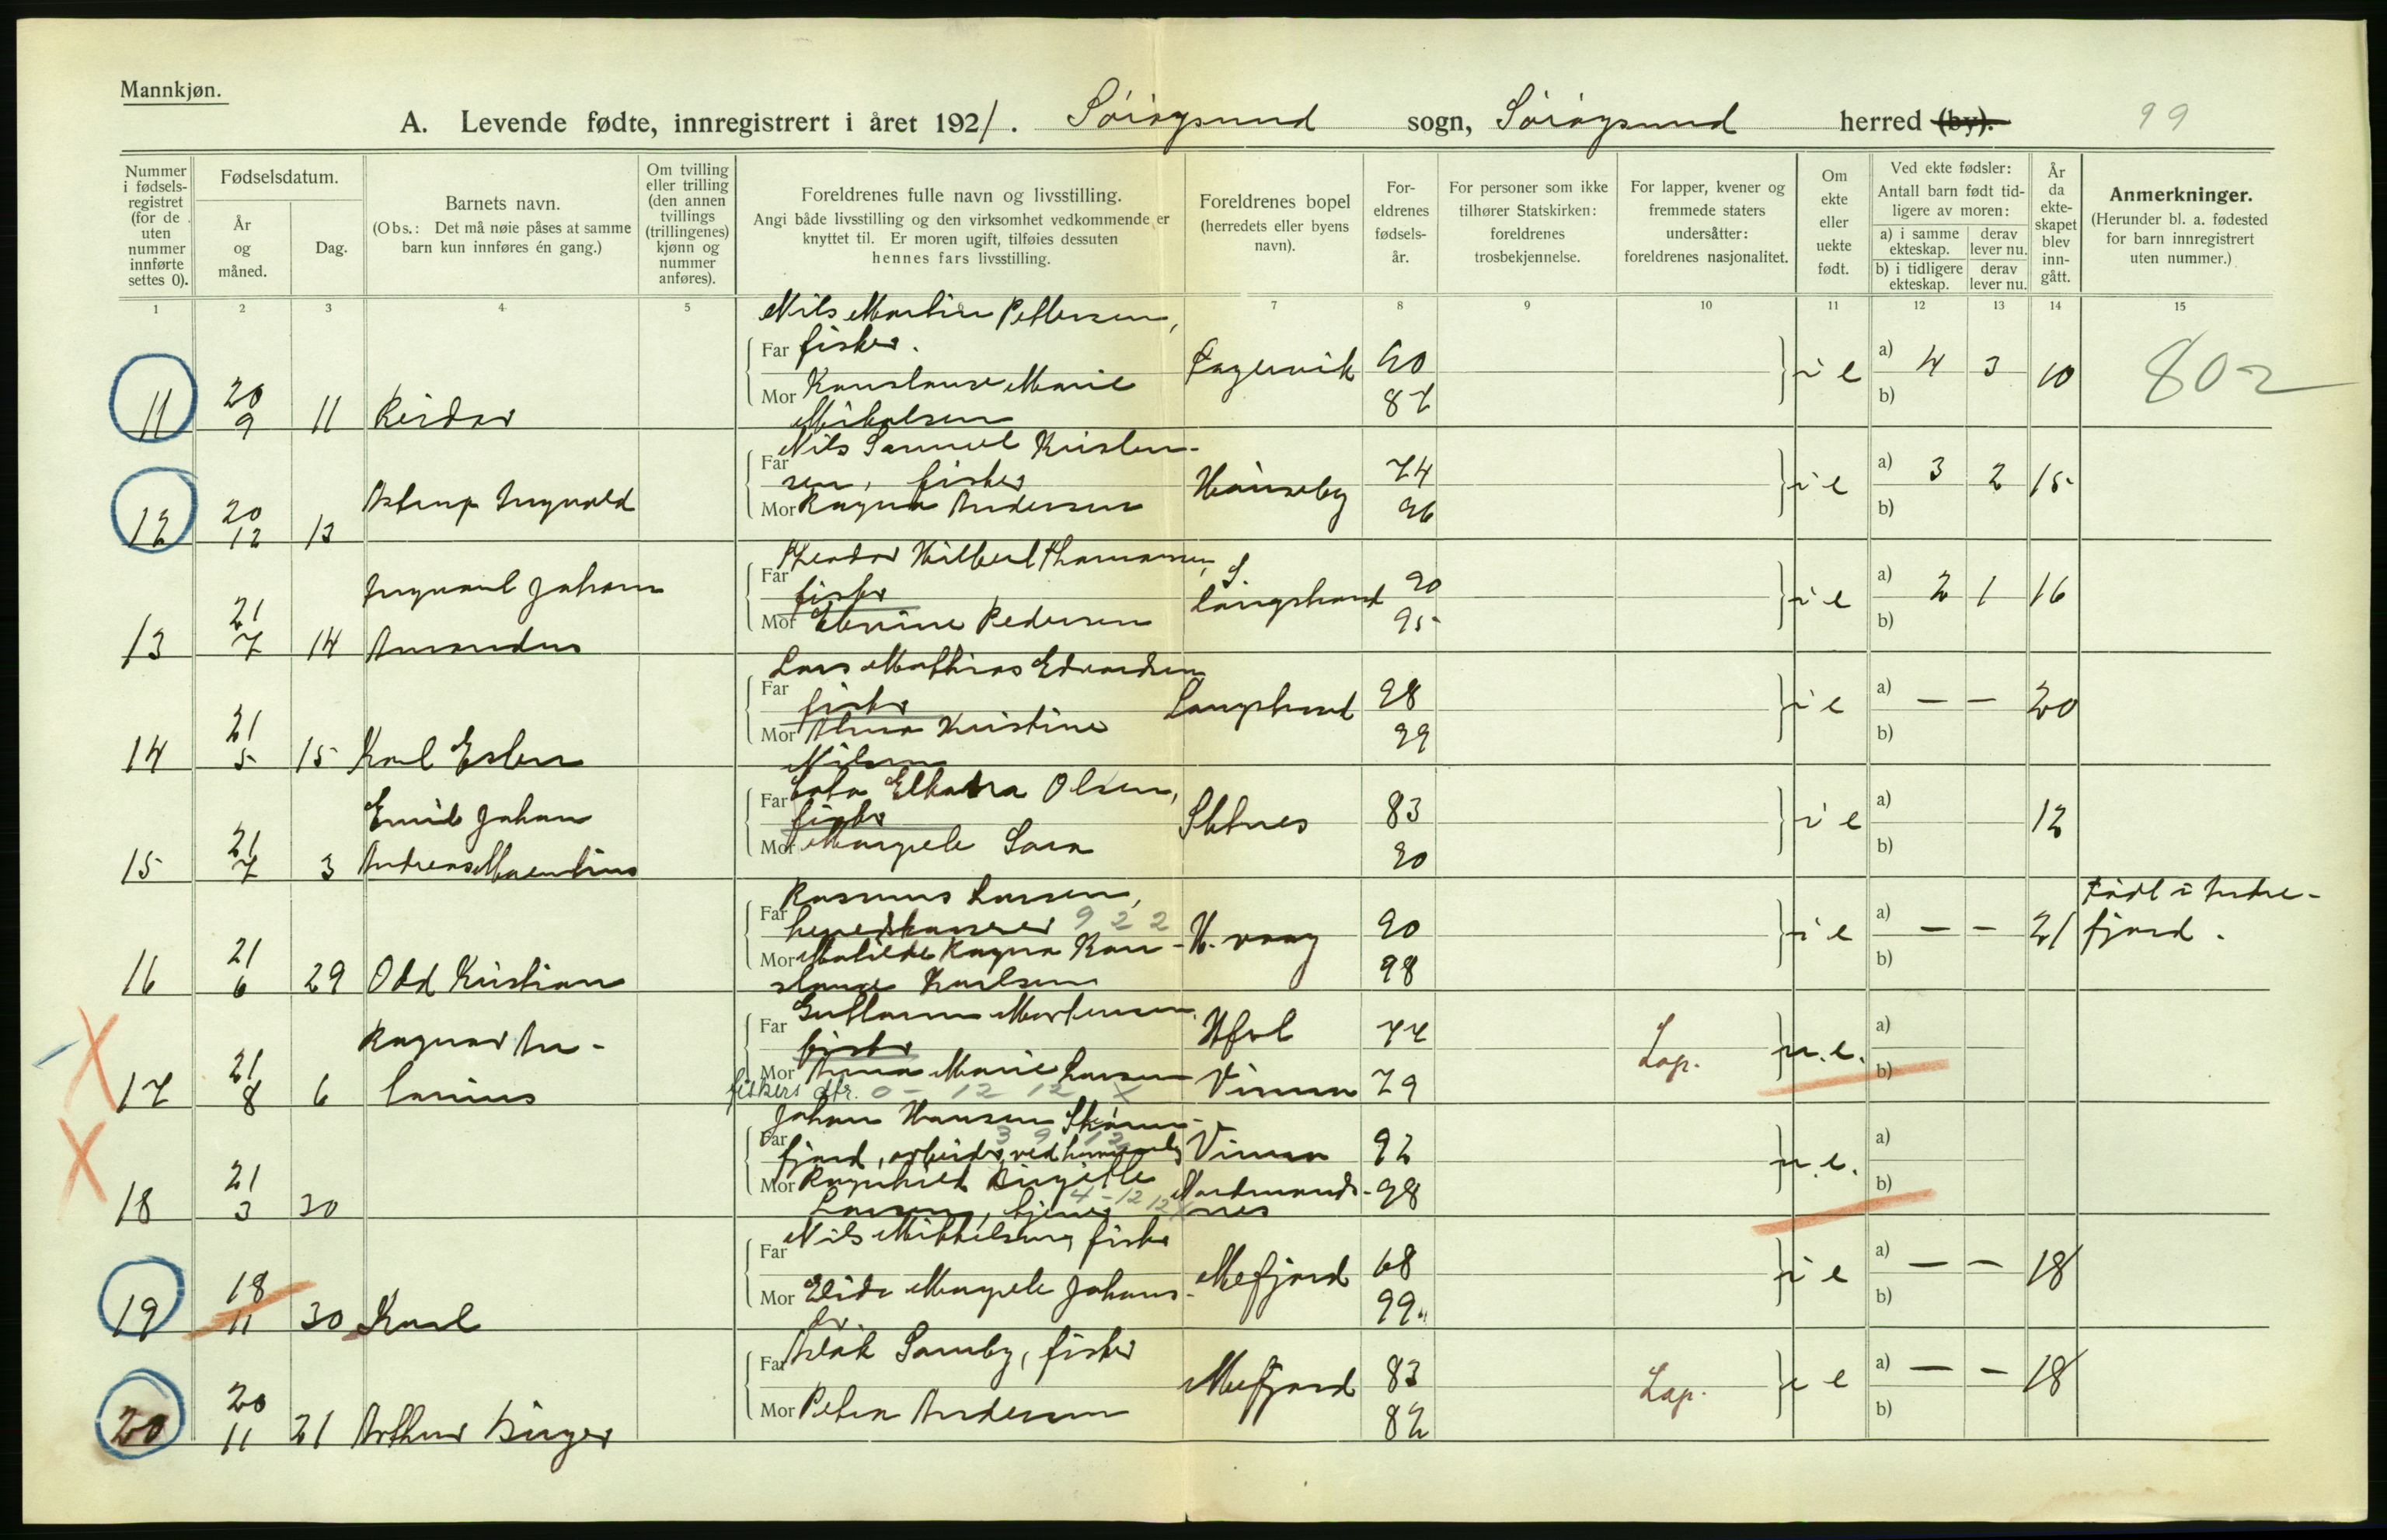 Mannkjøn.
A. Levende fødte, innregistrert i året 1921. Sørøysund sogn, Sørøysund herred (by). 99
Nummer i fødsels-registret (for de uten nummer innførte settes 0).
Fødselsdatum.
År og måned.
Dag.
Barnets navn.
(Obs.: Det må nøie påses at samme barn kun innføres én gang.)
Om tvilling eller trilling (den annen tvillings (trillingenes) kjønn og nummer anføres).
Foreldrenes fulle navn og livsstilling.
Angi både livsstilling og den virksomhet vedkommende er knyttet til. Er moren ugift, tilføies dessuten hennes fars livsstilling.
Foreldrenes bopel
(herredets eller byens navn).
For-eldrenes fødsels-år.
For personer som ikke tilhører Statskirken: foreldrenes trosbekjennelse.
For lapper, kvener og fremmede staters undersåtter: foreldrenes nasjonalitet.
Om ekte eller uekte født.
Ved ekte fødsler:
Antall barn født tid-ligere av moren:
a) i samme ekteskap.
derav lever nu.
b) i tidligere ekteskap.
derav lever nu.
År da ekte-skapet blev inn-gått.
Anmerkninger.
(Herunder bl. a. fødested for barn innregistrert uten nummer.)
1 2 3 4 5 6 7 8 9 10 11 12 13 14 15
Nils Martin Pettersen,
Far fisker. Fagervik 90 i e a) 4 3 10 802
Mor Konstanse Marie 87 b)
11 20 9 11 Reidar Mikalsen
Nils Samuel Kristen-
Far sen, fisker Hønseby 74 i e a) 3 2 15
Mor Ragna Andersen 96 b)
12 20 12 13 Astrup Ingvald
Theodor Hilbert Thomassen,
Far fisker S. Langstrand 90 i e a) 2 1 16
Mor Edvine Pedersen 95 b)
13 21 7 14 Ingvard Johan Amandus
Lars Mathias Edvardsen
Far fisker Langstrand 98 i e a) — — 20
Mor Alma Kristine 99 b)
14 21 5 15 Karl Esten Nilsen
Far Olsen, fisker 83 i e a) 12
Mor Margrete Sara 90 b)
15 21 7 3 Emil Johan Andreas
Rasmus Larsen,
Far herredskasserer 922 H. vaag 90 i e a) — — 21 Født i Indre-
Mor Matilde Ragna Kon- 98 b) fjord.
16 21 6 29 Odd Kristian stanse Karlsen
Far Guttorm Mortensen, fisker 77 Lap. u. e. a)
Mor Anna Marie Larsen 79 b)
17 21 8 6 Ragnar An- fiskers dtr. 0 - 12 12 X
Johan Hansen
Far fjord, arbeider ved 3 9 12 92 u. e. a)
Mor Ragnhild Birgitte Nordmands-nes 98 b)
18 21 3 30 Larsen, tjener 4 - 12 12 X
Nils Mikkelsen, fisker
Far Mefjord 68 i e a) — — 18
Mor Elida Margrete Johans- 99 b)
19 18 11 30 Karl dr
Far Aslak Samby, fisker Mefjord 83 Lap. i e a) — — 18
Mor Petra Andersen 82 b)
20 20 11 21 Arthur Birger